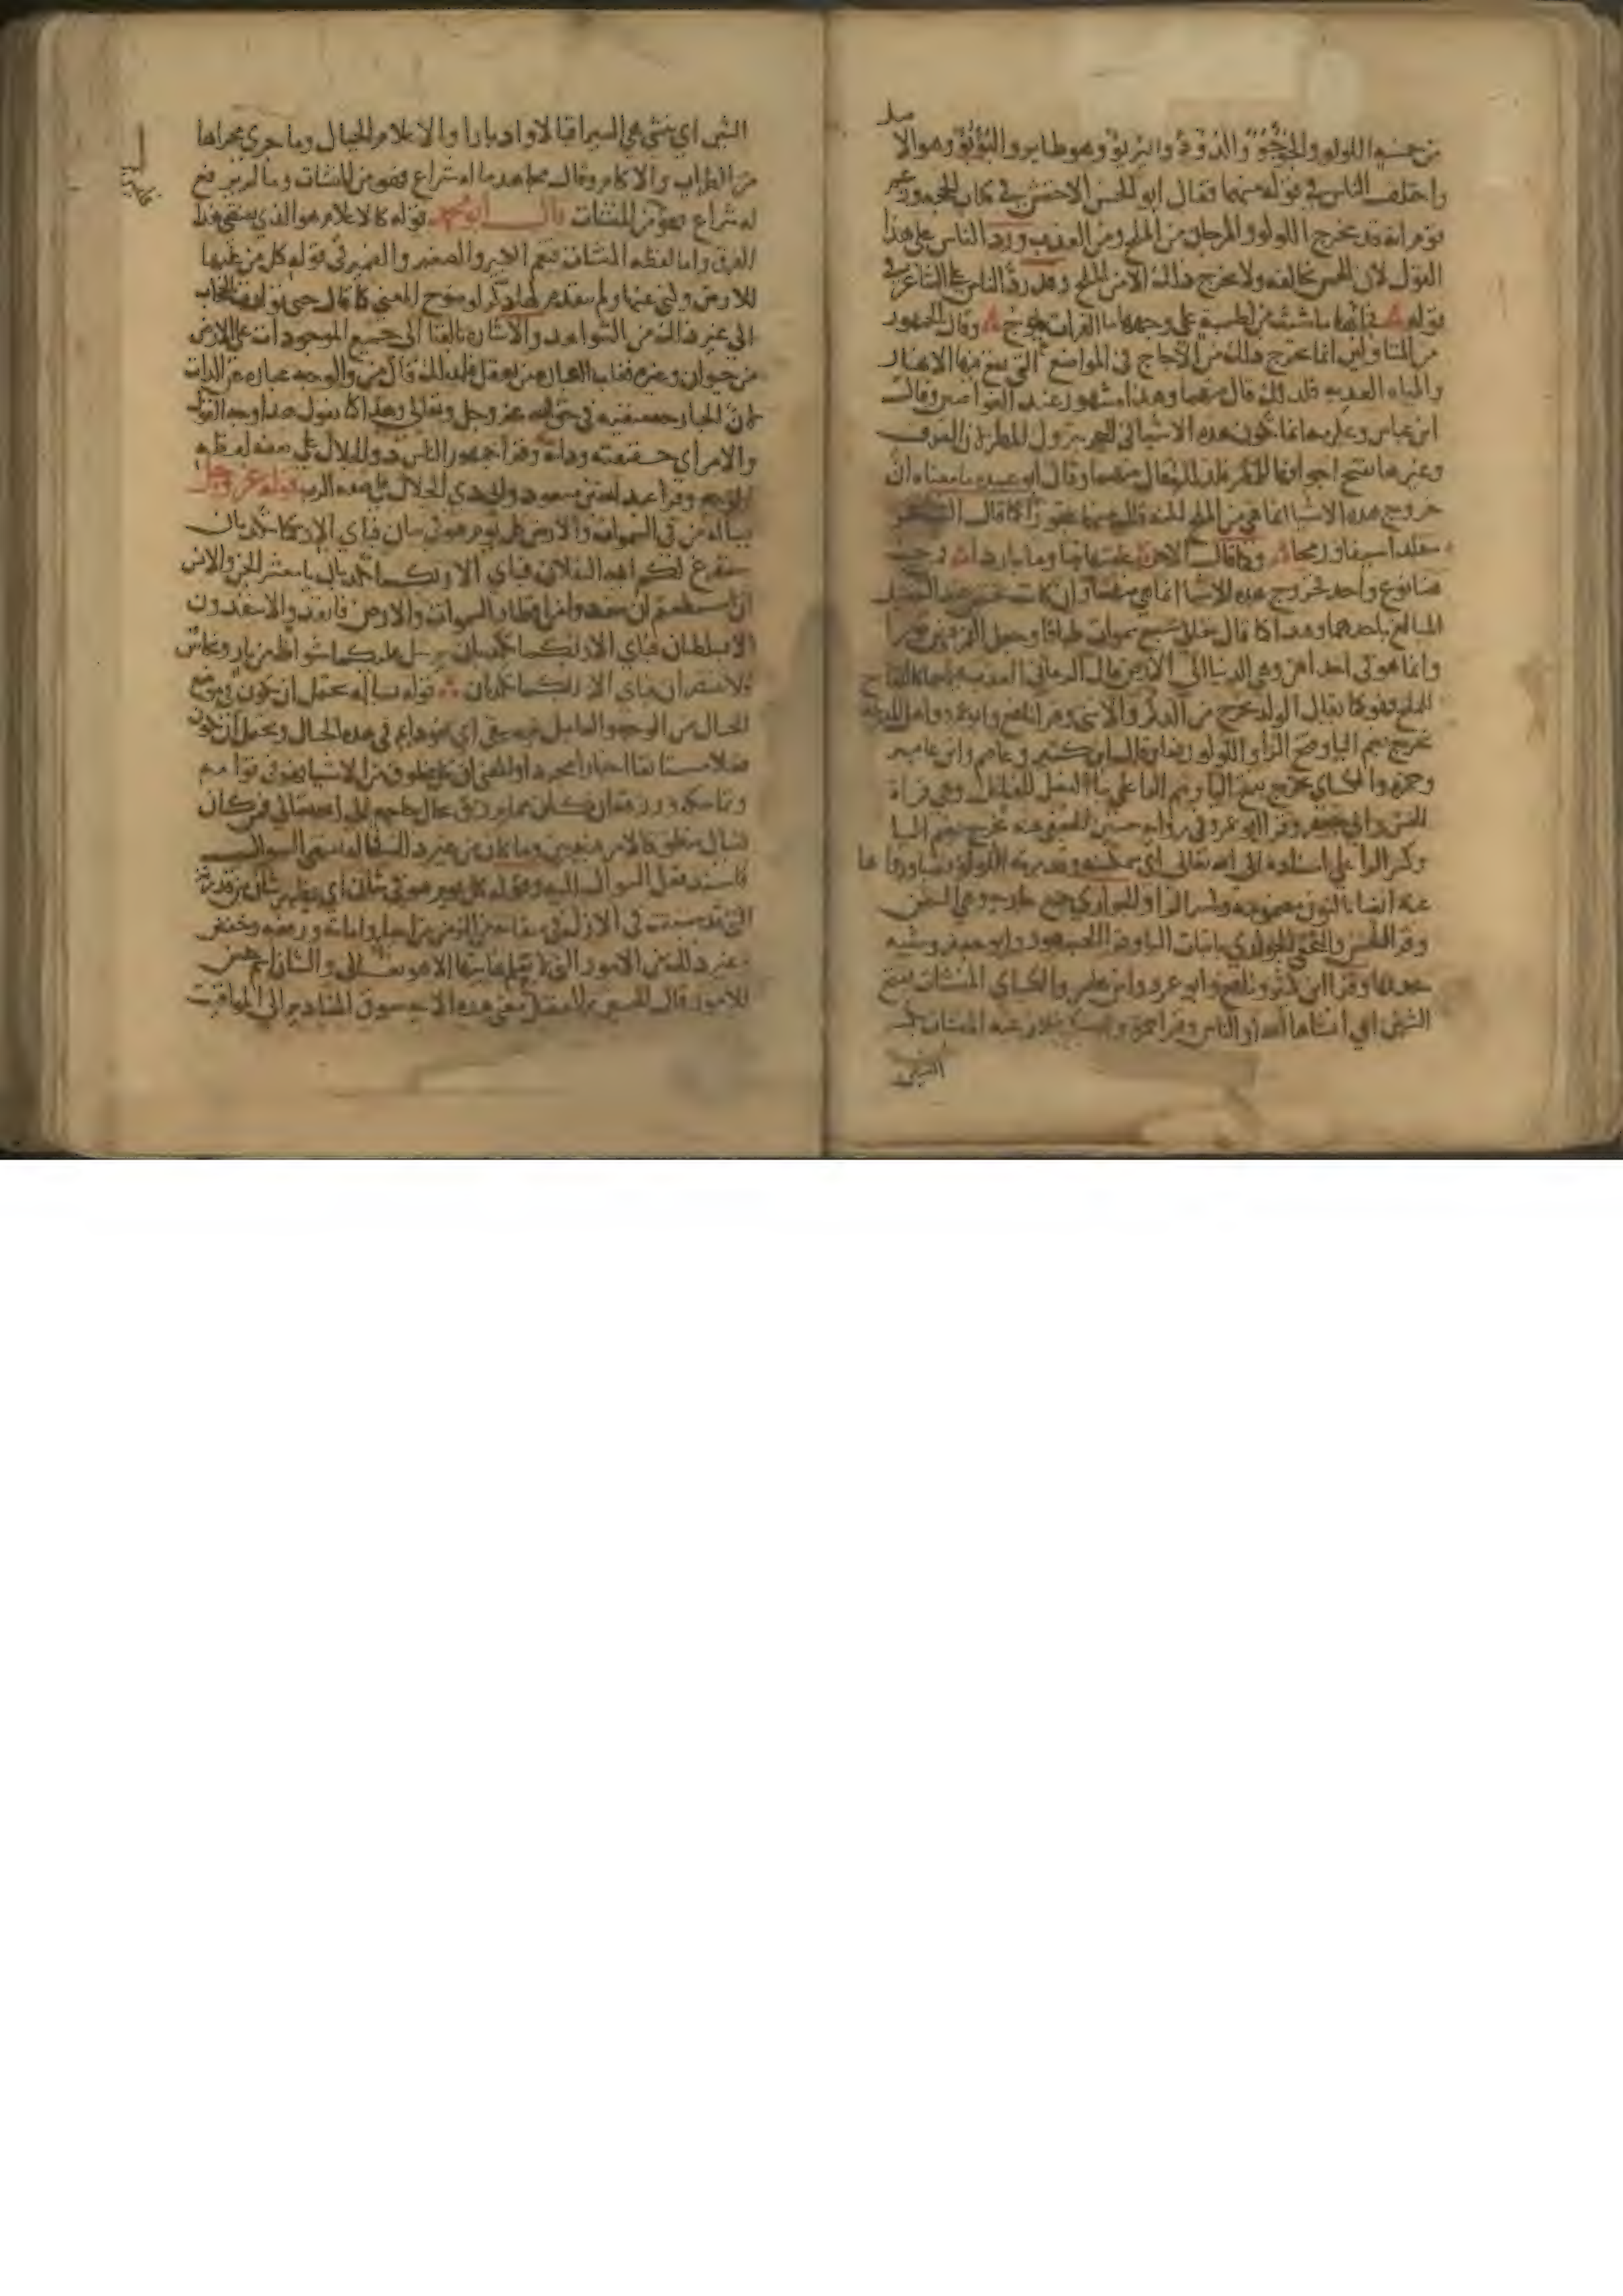 من خمسة اللولو والجؤجؤ والدؤدؤ واليؤيؤ وهو طاير والبؤبؤ وهو الا
واختلف الناس في قوله منهما فقال ابو الحسن الاخفش في كتابه الحجه وزعم
قوم انه قد يخرج اللولو والمرجان من الملح ومن العذب ورد الناس على هذا
القول لان الحس يخالفه ولا يخرج ذلك الا من الملح وقد رد الناس على الشاعر في
قوله فجاء بها ما شيت من لطمية على وجهها ما الفرات يموج وقال الجمهور
من المتاولين انما يخرج ذلك من الاجاج في المواضع التي تقع فيها الانهار
والمياه العذبه فلذلك قال منهما وهذا مشهور عند الغواصين وقال
ابن عباس وعكرمه انما تتكون هذه الاشيا في البحر بنزول المطر لان الصدف
وغيرها تفتح اجوافها للمطر فلذلك قال منهما وقال ابو عبيده ما معناه ان
خروج هذه الاشيا انما هي من الملح لكنه قال منهما تجوزا كما قال الشاعر
متقلدا سيفا ورمحا وكما قال الاخر علفتها تبنا وما باردا فمن حيث
هما نوع واحد فخروج هذه الاشيا انما هي منهما وان كانت تختص عند التفصيل
المبالغ باحدهما وهذا كما قال خلق سبع سموات طباقا وجعل القمر فيهن نورا
وانما هو في احداهن وهي الدنيا الى الارض قال الرماني العذب فيهما كاللقاح
للملح فهو كما يقال الولد يخرج من الذكر والانثى وقرا نافع وابو عمرو واهل المدينه
يخرج بضم اليا وفتح الرا واللولو رفعا وقرا ابن كثير وعاصم وابن عامر
وحمزه والكساي يخرج بفتح اليا وضم الرا على بنا الفعل للفاعل وهي قراة
الحسن وابي جعفر وقرا ابو عمرو في رواية حسين الجعفي عنه يخرج بضم اليا
وكسر الرا على اسناده الى الله تعالى اي بتمكينه وقدرته اللولو نصبا ورواها
عنه ايضا بالنون مضمومه وكسر الرا والجواري جمع جاريه وهي السفن
وقرا الحسن والنخعي الجواري باثبات اليا وقرا الجمهور وابو جعفر وشيبه
بحذفها وقرا ابن كثير ونافع وابو عمرو وابن عامر والكساي المنشات بفتح
الشين اي انشاها الله او الناس وقرا حمزة وابو بكر بخلاف عنه المنشات بكسر
الشين
الشين اي تنشي هي السير اقبالا وادبارا والاعلام الجبال وما جرى مجراها
من الظراب والاكام وقال مجاهد ما له شراع فهو من المنشات وما لم يرفع
له شراع فليس من المنشات قال ابو محمد قوله كالاعلام هو الذي يقتضي هذا
الفرق واما لفظه المنشات فتعم الكبير والصغير والضمير في قوله كل من عليها
للارض وكني عنها ولم يتقدم لها ذكر لوضوح المعنى كما قال حتى توارت بالحجاب
الى غير ذلك من الشواهد والاشاره بالفنا الى جميع الموجودات على الارض
من حيوان وغيره فغلب العباره عن من يعقل فلذلك قال من والوجه عباره عن الذات
لان الجارحه منفيه في حق الله عز وجل وتعالى وهذا كما تقول هذا وجه القول
والامر اي حقيقته وذاته وقرا جمهور الناس ذو الجلال على صفه لفظه
الوجه وقرا عبد الله بن مسعود وابي ذي الجلال على صفه الرب قوله عز وجل
يساله من في السموات والارض كل يوم هو في شان فباي الا ربكما تكذبان
سنفرغ لكم ايه الثقلان فباي الا ربكما تكذبان يا معشر الجن والانس
ان استطعتم ان تنفذوا من اقطار السموات والارض فانفذوا لا تنفذون
الا بسلطان فباي الا ربكما تكذبان يرسل عليكما شواظ من نار ونحاس
فلا تنتصران فباي الا ربكما تكذبان قوله يساله يحتمل ان يكون في موضع
الحال من الوجه والعامل فيه يبقى اي هو دايم في هذه الحال ويحتمل ان يكون
فعلا مستانفا اخبارا مجردا والمعنى ان كل مخلوق من الاشيا فهو في قوامه
وتماسكه ورزقه ان كان مما يرزق بحال حاجه الى الله تعالى فمن كان
يسال بنطق فالامر فيه بين وما كان من غير ذلك فحاله تقتضي السوال
فاسند فعل السوال اليه وقوله كل يوم هو في شان اي يظهر شان من قدرته
التي قد سبقت في الازل في ميقاته من الزمن من احيا واماته ورفعه وخفض
وغير ذلك من الامور التي لا يعلم نهايتها الا هو تعالى والشان اسم جنس
للامور قال الحسين بن الفضل معنى هذه الايه سوق المقادير الى المواقيت